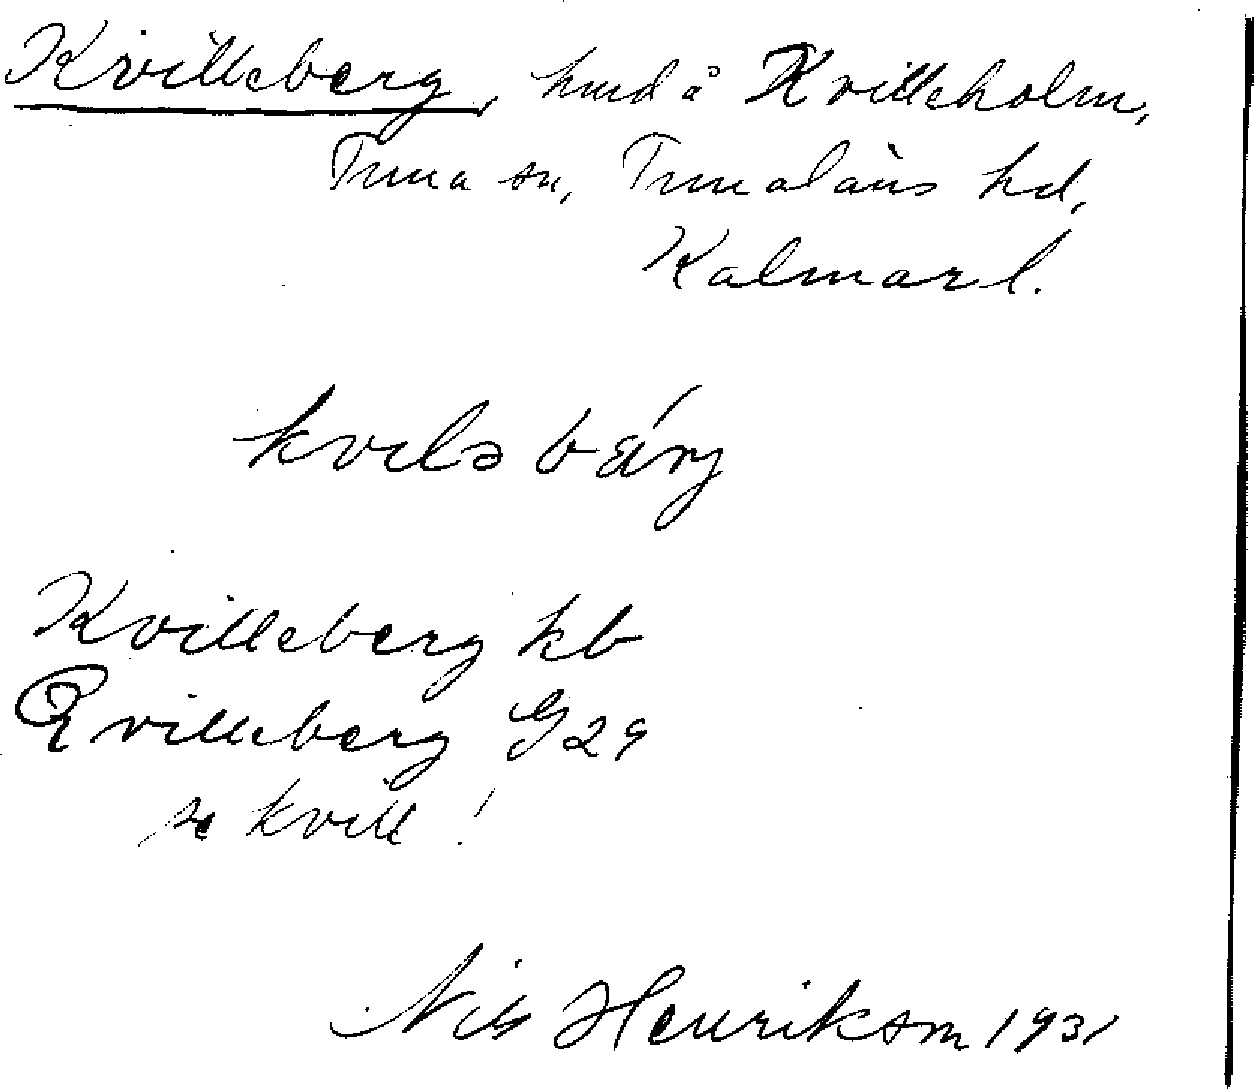 Kvilleberg, hmd å Kvilleholm,
Tuna sn, Tunaläns hd,
Kalmar l.
kvilə bä́rj
Kvilleberg kb
Qvilleberg G29
se kvill!
Nils Henrikson 1931